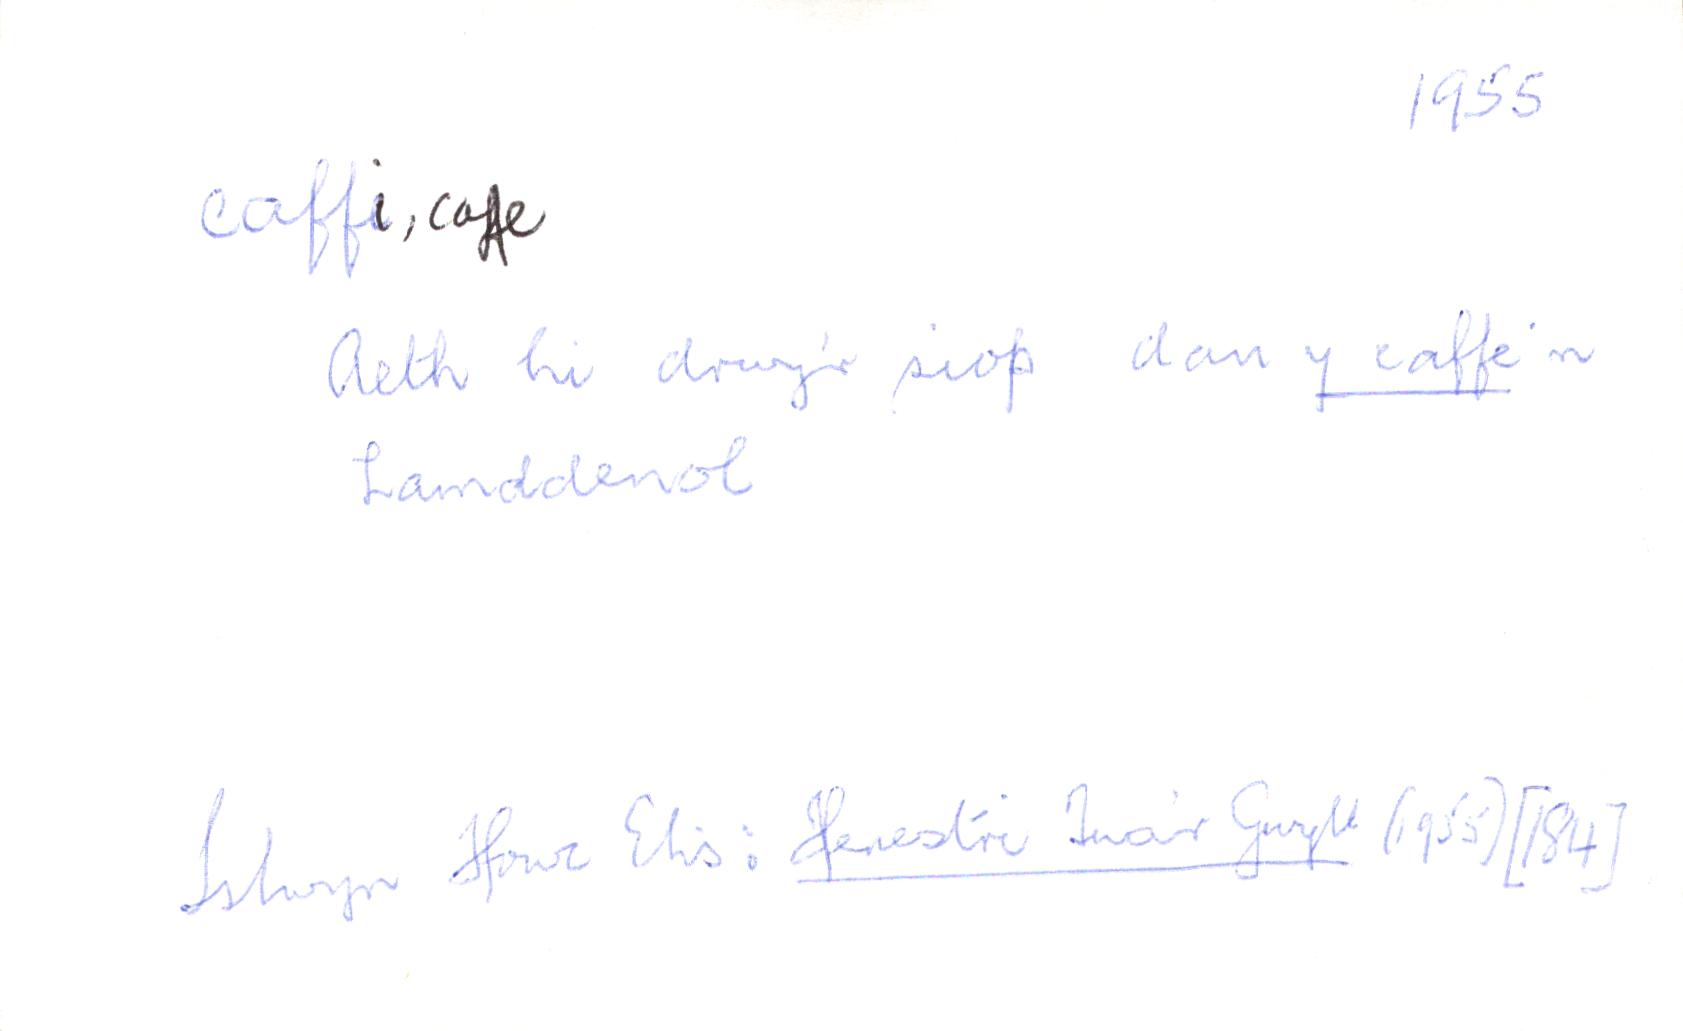 1955
caffi, caffe
Aeth hi drwy'r siop dan y caffe'n
hamddenol
Islwyn Ffowc Elis: Ffenestri Tua'r Gwyll (1955) [184]